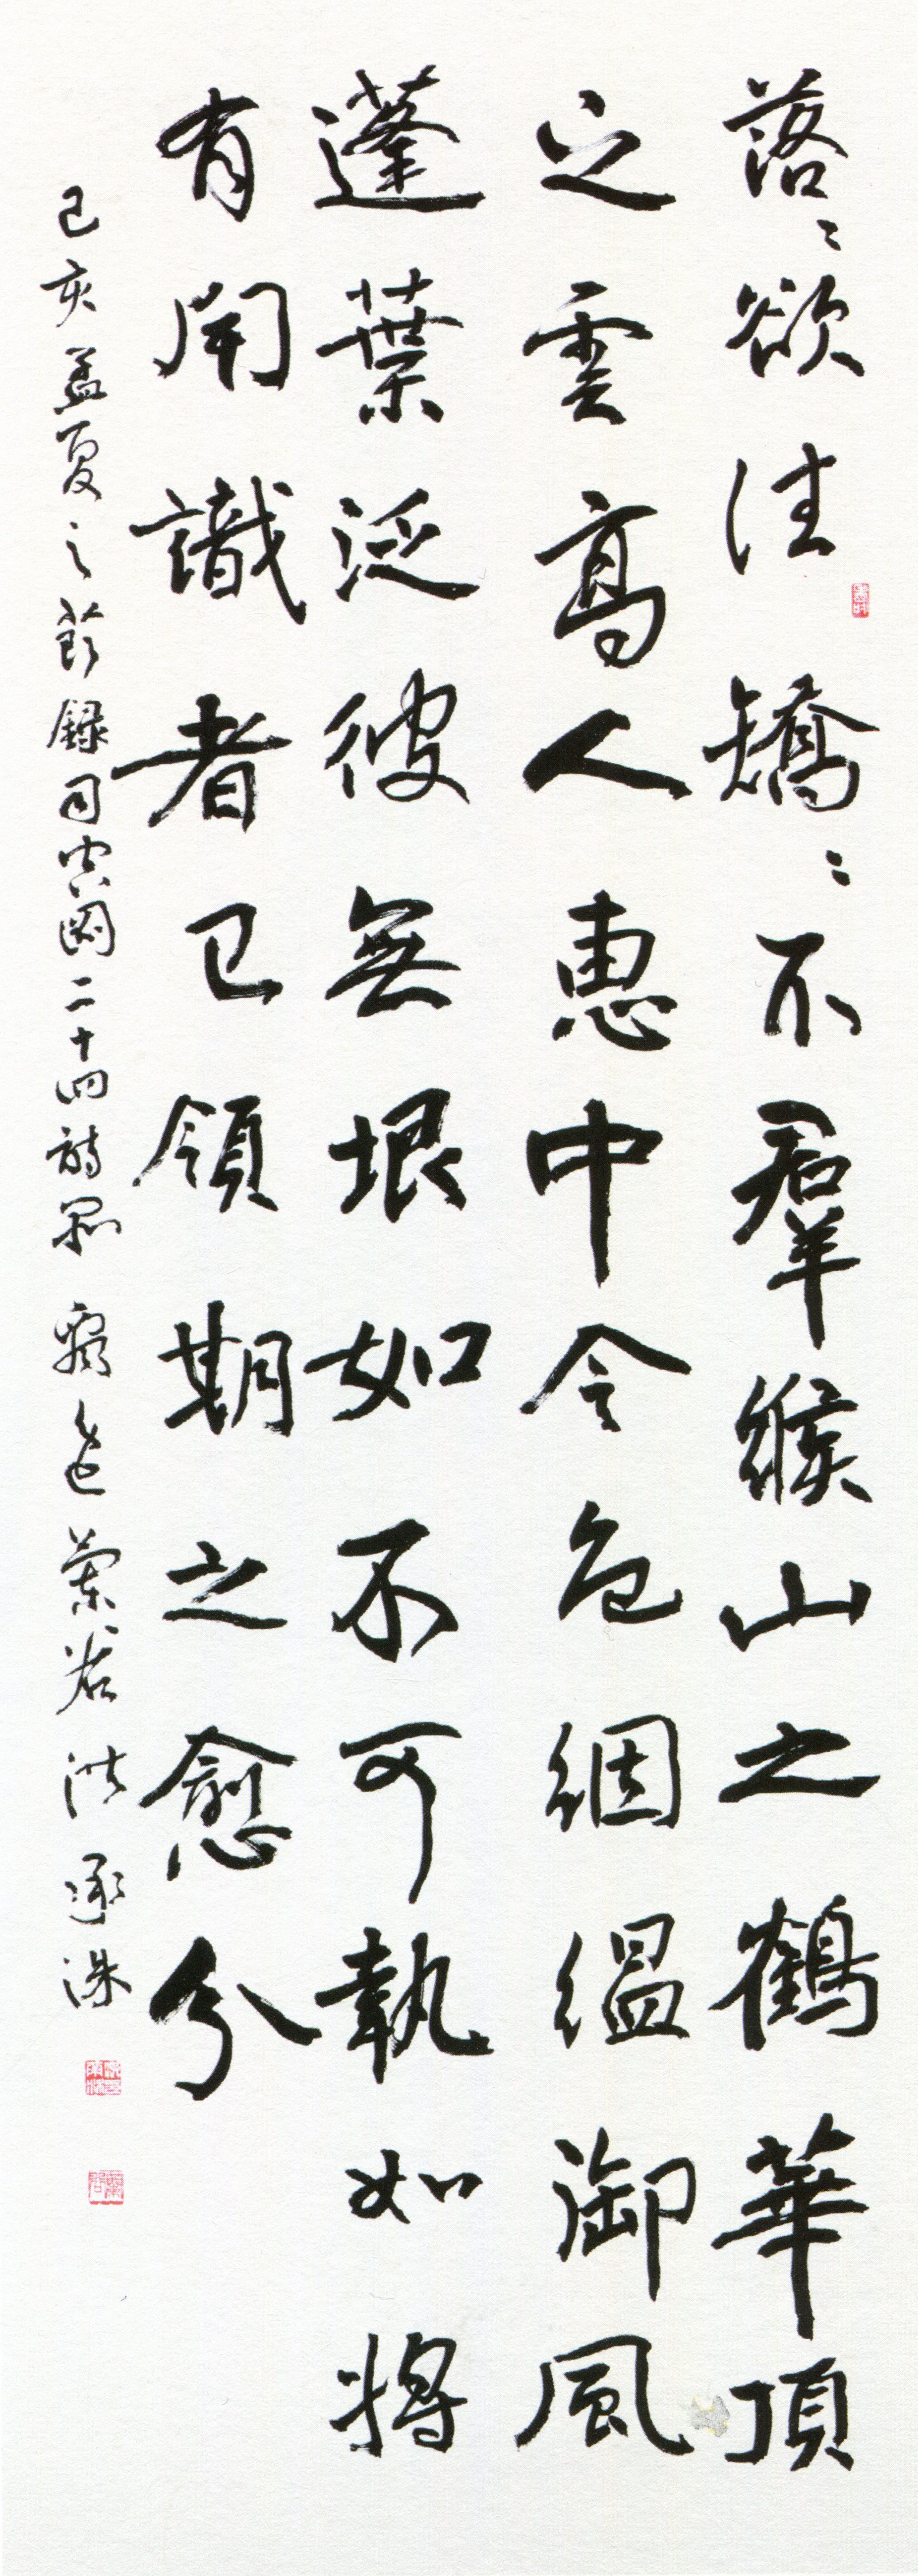 落〻欲往矯〻不羣緱山之鶴華頂
之雲高人惠中令色絪縕御風
蓬葉泛彼無垠如不可執如將
有聞識者已領期之愈分
己亥孟夏之節錄司空圖二十四詩品